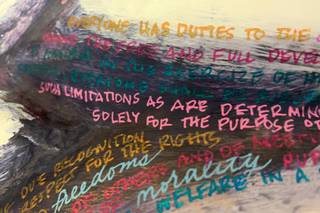 EVERYONE HAS DUTIES TO THE
AND FULL DEVEL
IN THE EXERCISE OF
EVERYONE SHALL BE
SUCH LIMITATIONS AS ARE DETERMIN
SOLELY FOR THE PURPOSE O
DUE RECOGNITION
RESPECT FOR THE RIGHTS
freedoms
OF OTHERS AND OF MEET
morality
WELFARE IN A